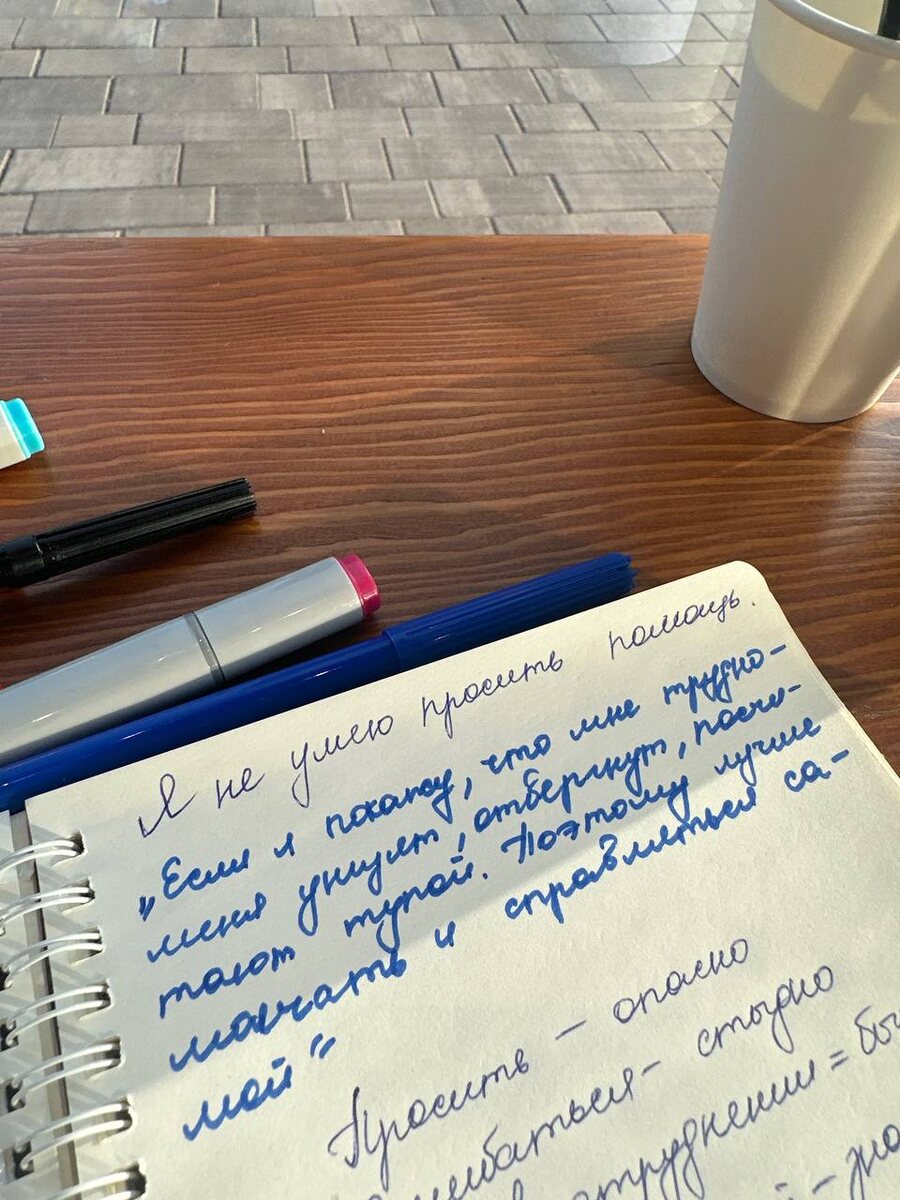 Я не умею просить помощь.
„Если я покажу, что мне трудно-
меня унизят, отвергнут, посчи-
тают тупой. Поэтому лучше
молчать и справляться са-
мой"
Просить – опасно
ошибаться – стыдно
затруднении = бы